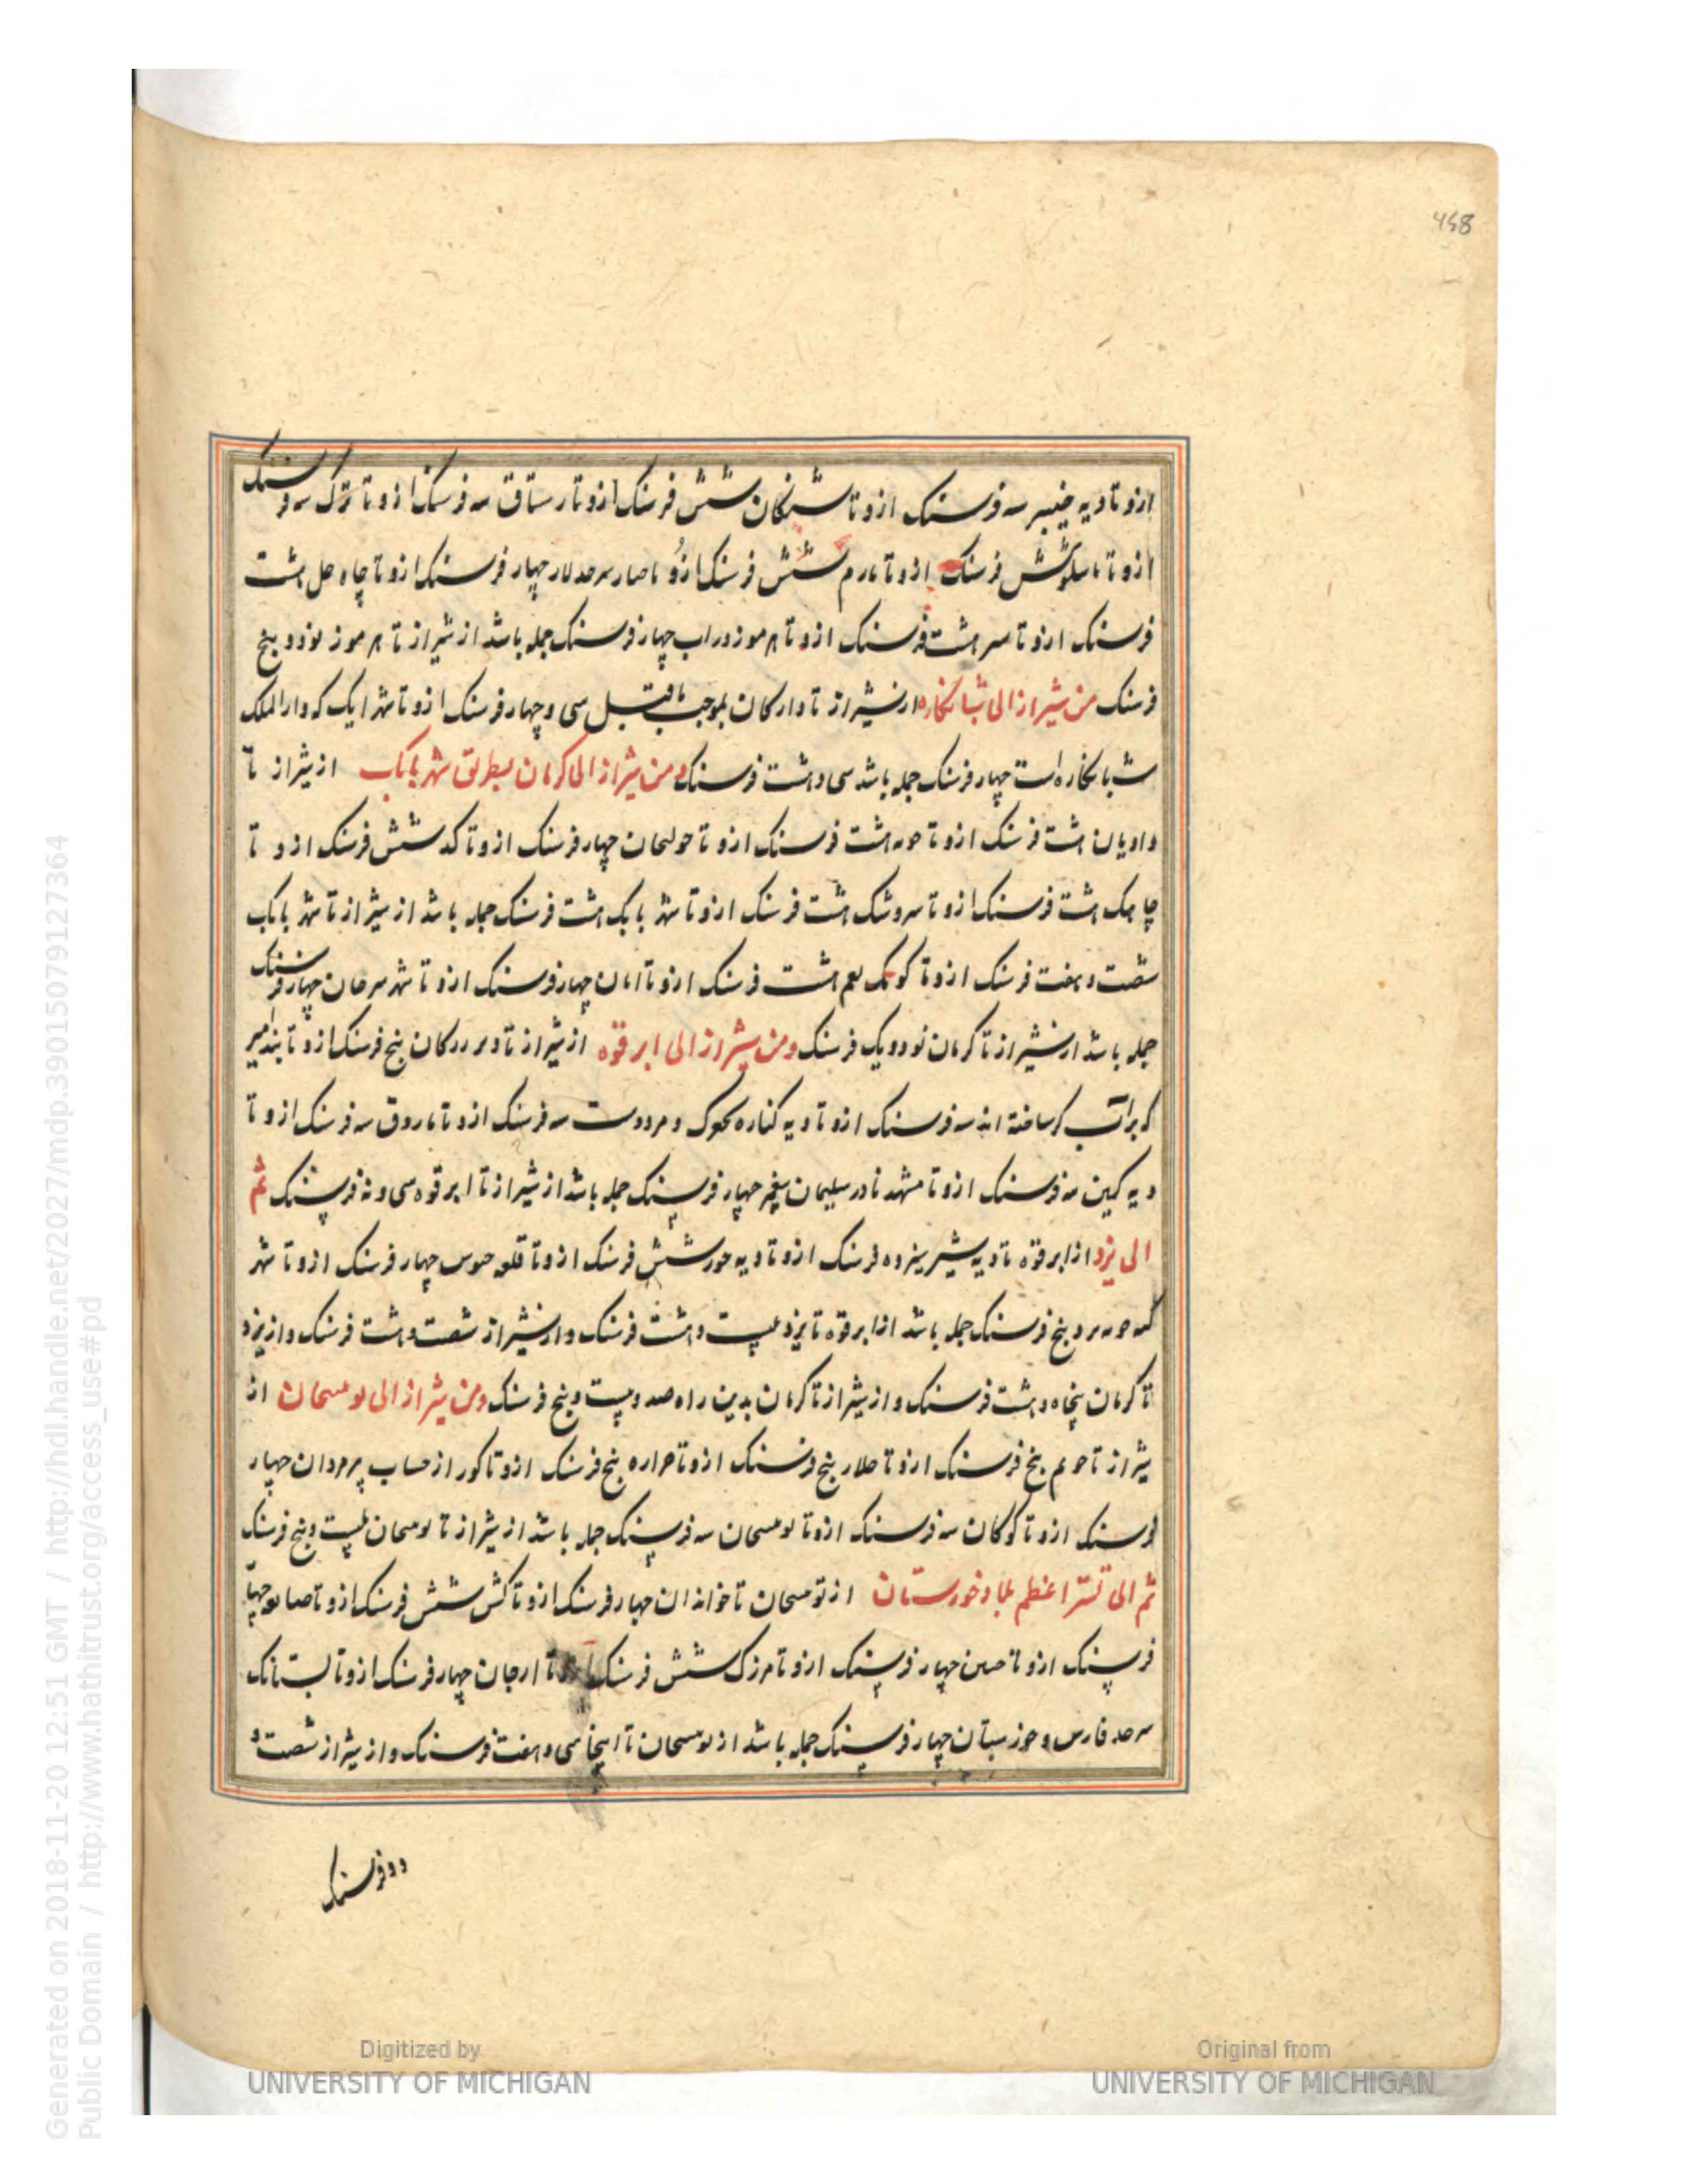 458
ازو تا دیه خیسر سه فرسنک ازو تا شنکان شش فرسنک ازو تا رستاق سه فرسنک ازو تا ترک سه فرسنک
ازو تا شش فرسنک ازو تا تارم شش فرسنک ازو تا سرحد لار چهار فرسنک ازو تا چاه حل هشت
فرسنک ازو تا سر هشت فرسنک ازو تا هرموز در اب چهار فرسنک جمله باشد از شیراز تا هرموز نود و پنج
فرسنک من شیراز الی شبانکاره از شیراز تا دارکان بموجب ماقبل سی و چهار فرسنک ازو تا شهر ایک که دار الملک
شبانکاره است چهار فرسنک جمله باشد سی و هشت فرسنک ومن شیراز الی کرمان بطریق شهر بابک از شیراز تا
داریان هشت فرسنک ازو تا حره هشت فرسنک ازو تا حولحان چهار فرسنک ازو تا کد شش فرسنک ازو تا
چاهک هشت فرسنک ازو تا سروشک هشت فرسنک ازو تا شهر بابک هشت فرسنک جمله باشد از شیراز تا شهر بابک
شصت و هفت فرسنک ازو تا کوشک نعم هشت فرسنک ازو تا ابان چهار فرسنک ازو تا شهر سرحان چهار فرسنک
جمله باشد از شیراز تا کرمان نود و یک فرسنک ومن شیراز الی ابرقوه از شیراز تا زرکان پنج فرسنک ازو تا بندامیر
که بر آب کر ساخته اند سه فرسنک ازو تا دیه کناره و مرودست سه فرسنک ازو تا فاروق سه فرسنک ازو تا
دیه کمین سه فرسنک ازو تا مشهد مادر سلیمان پیغمبر چهار فرسنک جمله باشد از شیراز تا ابرقوه سی و نه فرسنک ثم
الی یزد از ابرقوه تا دیه شیر سیزده فرسنک ازو تا دیه جور شش فرسنک ازو تا قلعه مجوس چهار فرسنک ازو تا شهر
یزد پنج فرسنک جمله باشد از ابرقوه تا یزد بیست و هشت فرسنک و از شیراز شصت و هشت فرسنک و از یزد
تا کرمان پنجاه و هشت فرسنک و از شیراز تا کرمان بدین راه صد و بیست و پنج فرسنک ومن شیراز الی نوبنجان از
شیراز تا جویم پنج فرسنک ازو تا خلار پنج فرسنک ازو تا خراره پنج فرسنک ازو تا کور از حساب تیرمردان چهار
فرسنک ازو تا کوکان سه فرسنک ازو تا نوبنجان سه فرسنک جمله باشد از شیراز تا نوبنجان بیست و پنج فرسنک
ثم الی تستر اعظم بلاد خوزستان از نوبنجان تا خوابدان چهار فرسنک ازو تا کش شش فرسنک ازو تا چهار
فرسنک ازو تا حبس چهار فرسنک ازو تا فرزک شش فرسنک ازو تا ارجان چهار فرسنک ازو تا بستانک
سرحد فارس و خوزستان چهار فرسنک جمله باشد از نوبنجان تا اینجا سی و هفت فرسنک و از شیراز شصت و
دو فرسنک
Generated on 2018-11-20 12:51 GMT / http://hdl.handle.net/2027/mdp.39015079127364
Public Domain / http://www.hathitrust.org/access_use#pd
Digitized by
UNIVERSITY OF MICHIGAN
Original from
UNIVERSITY OF MICHIGAN